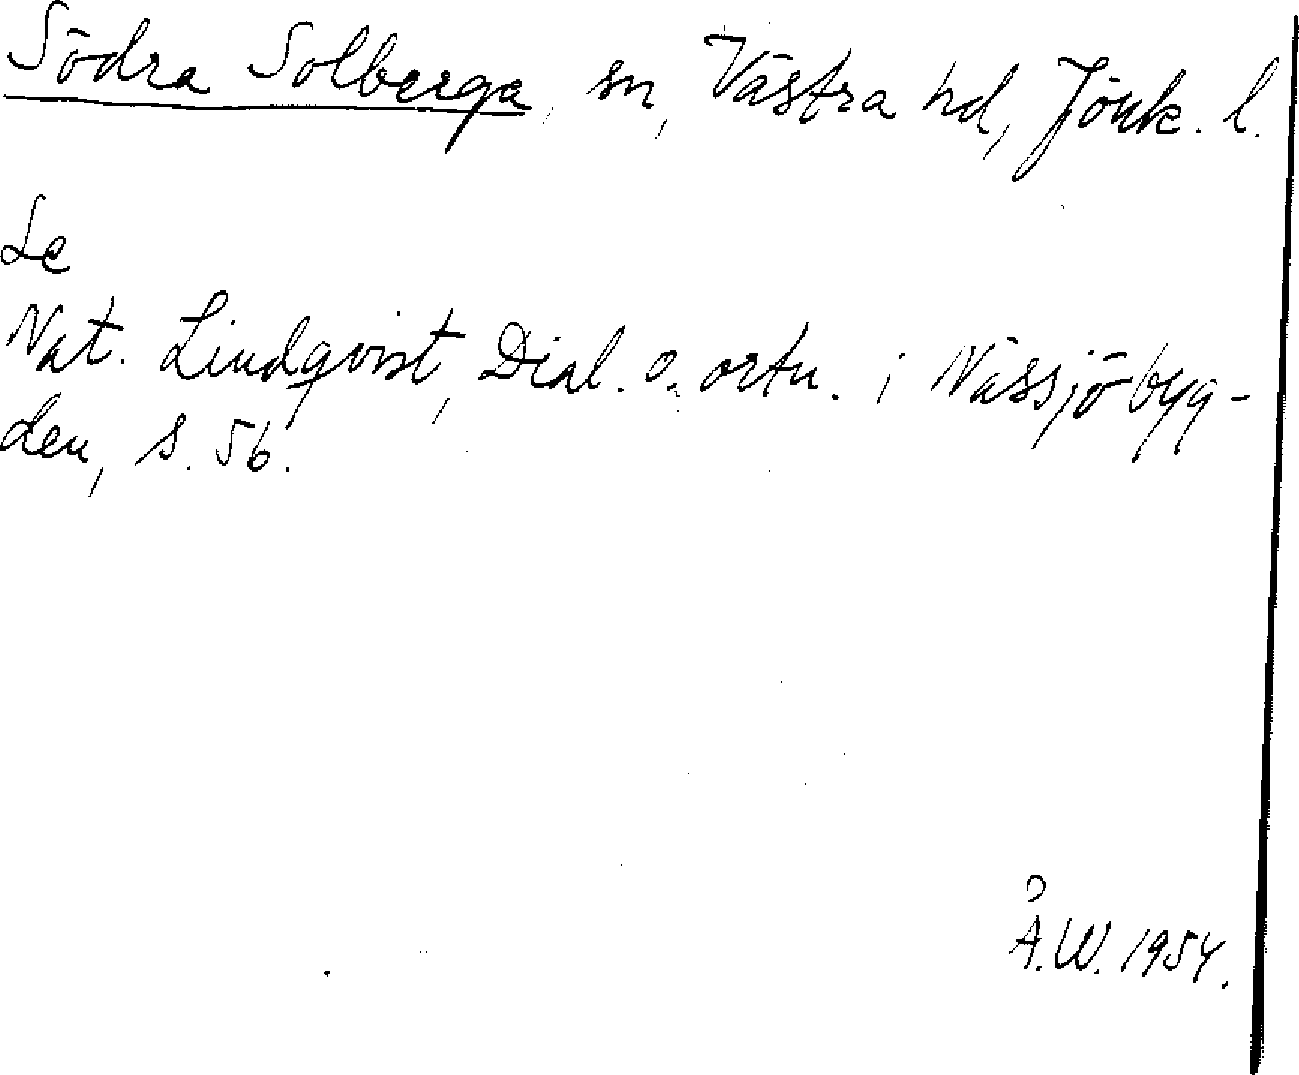 Södra Solberga, sn, Västra hd, Jönk. l.
Se
Nat. Lindqvist, Dial. o. ortn. i Nässjöbyg-
den, s. 56.
Å.W. 1954.